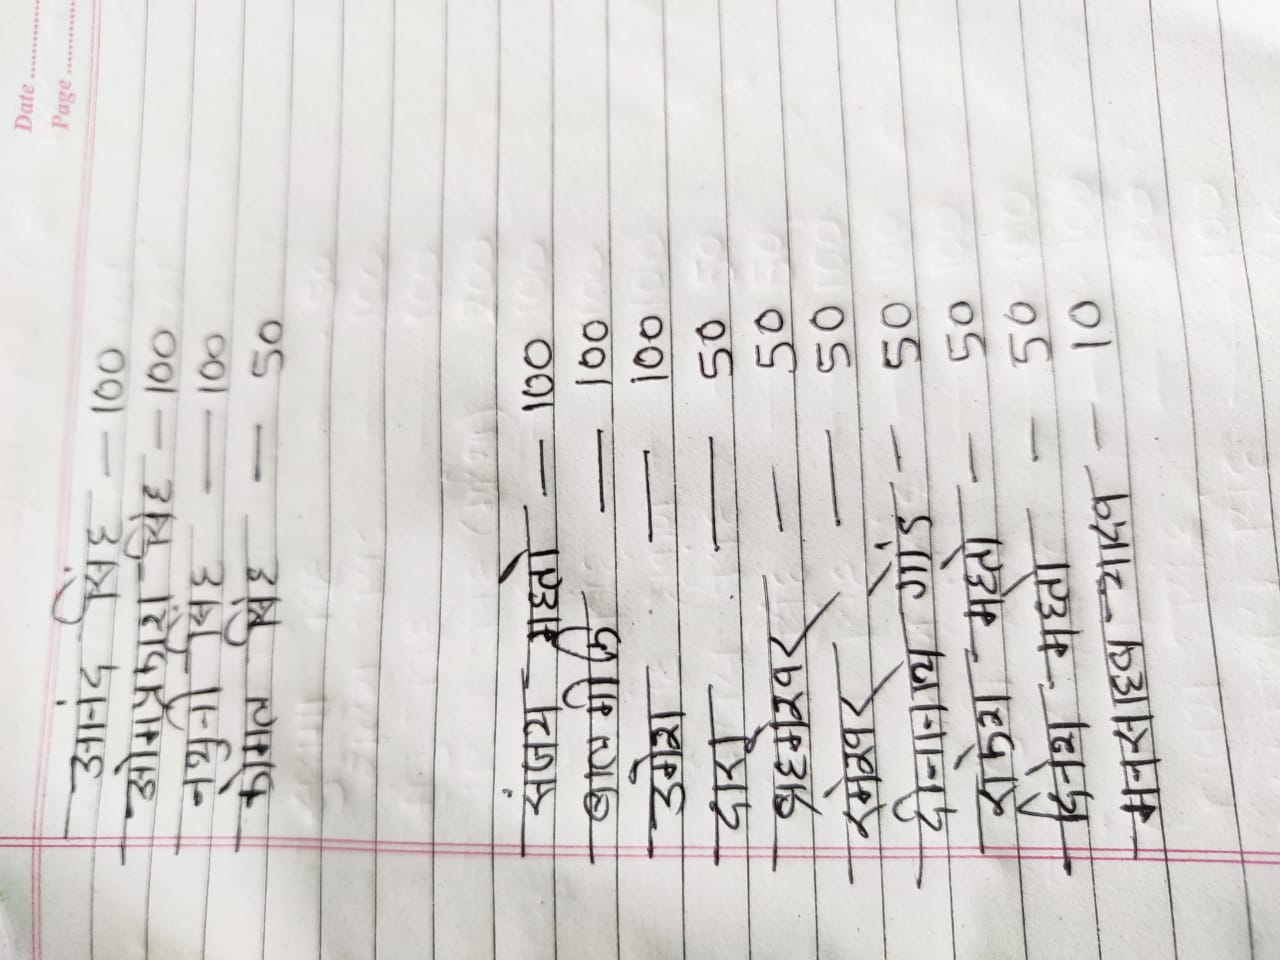 Date
Page
आनंद सिंह — 100
ओमप्रकाश सिंह — 100
नथुनी सिंह — 100
कोमल सिंह — 50
संजय महतो — 100
बालमीकि — 100
उमेश — 100
दारा — 50
ब्रहमेश्वर — 50
रमेश्वर — 50
दीनानाथ गोंड — 50
राकेश महतो — 50
दिनेश महतो — 50
मनसाहब यादव — 10